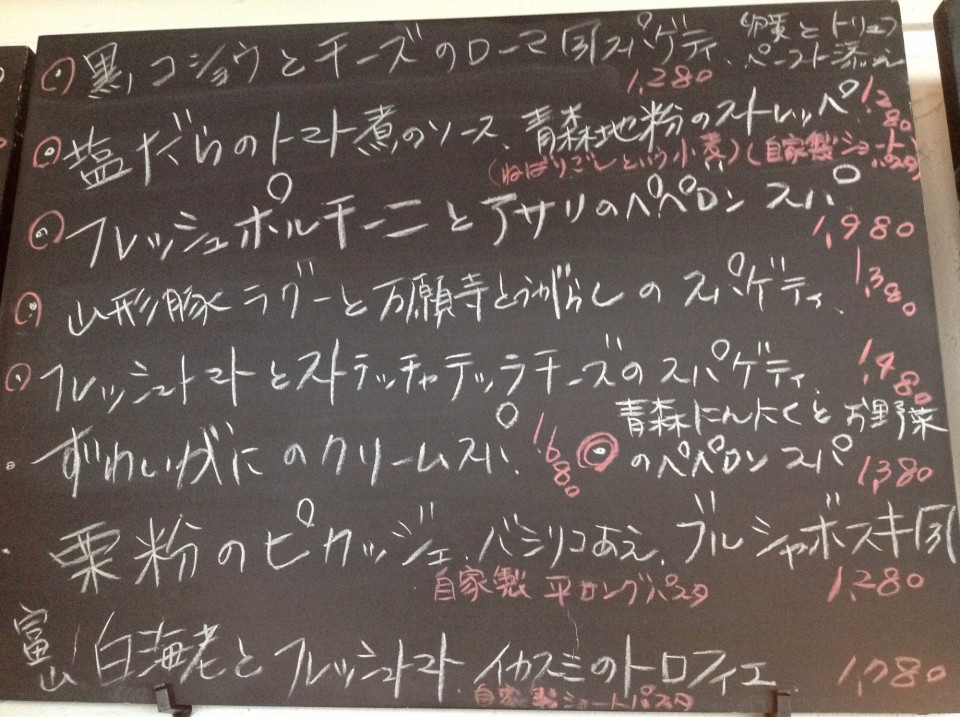 黒コショウとチーズのローマ風スパゲティ、卵黄とトリュフ
ペースト添え
1,280
塩だらのトマト煮のソース、青森地粉のストレッパ 1,280
(ねばりごしという小麦)(自家製ショートパスタ)
フレッシュポルチーニとアサリのペペロンスパ
1,980
山形豚ラグーと万願寺とうがらしのスパゲティ、1,380
フレッシュトマトとストラッチャテッラチーズのスパゲティ、1,480
ずわいがにのクリームスパ、1,680
青森にんにくとお野菜
のペペロンスパ 1,380
栗粉のピカッジェ、バジリコあえ、ブルシャボスキ風
自家製 平ロングパスタ 1,280
富山白海老とフレッシュトマト、イカスミのトロフィエ 1,780
自家製ショートパスタ